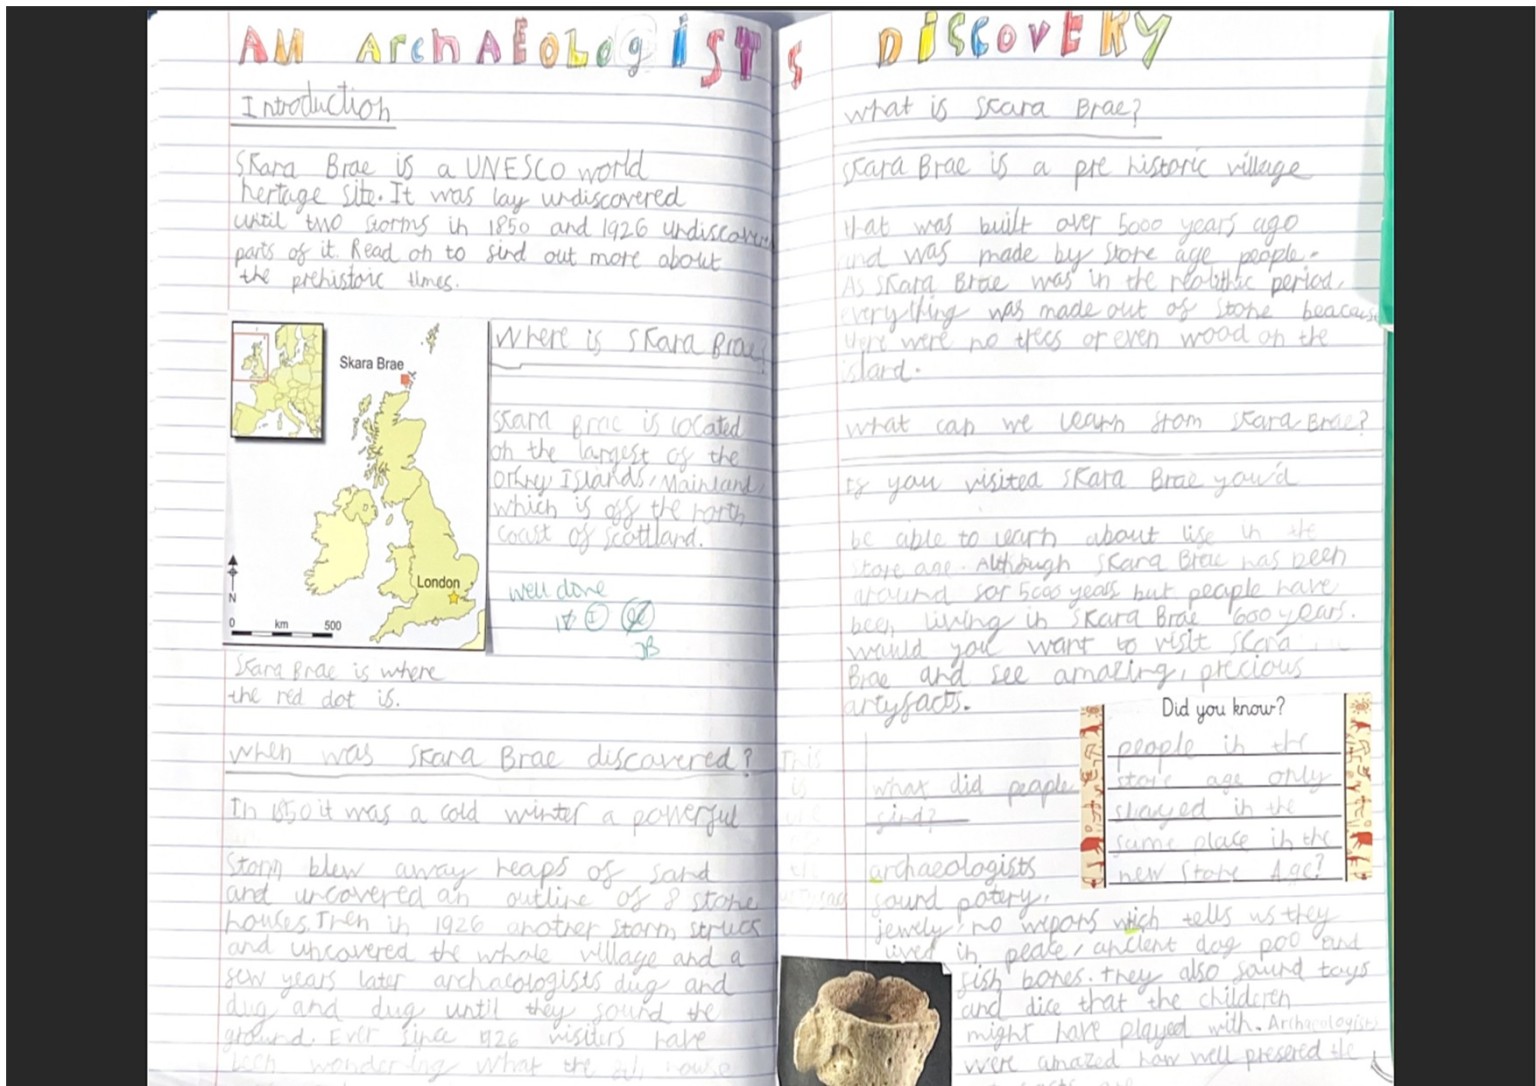 AM ArchAEoLogiST
Introduction
Skara Brae is a UNESCO world
hertage site. It was lay undiscovered
until two storms in 1850 and 1926 undiscover
parts of it. Read on to find out more about
the prehistoric times.
Skara Brae
London
N
0 km 500
Where is Skara Brae?
Skara Brae is located
on the largest of the
Orkny Islands, Mainland,
which is off the north
coast of Scottland.
well done
I
JB
Skara Brae is where
the red dot is.
When was Skara Brae discovered?
In 1850 it was a cold winter a powerful
Storm blew away heaps of sand
and uncovered an outline of 8 stone
houses. Then in 1926 another storm struck
and uncovered the whole village and a
few years later archaeologists dug and
dug and dug until they found the
ground. Ever since 1926 visiters have
been wondering what the
S DiScOVERY
What is Skara Brae?
Skara Brae is a pre historic village
that was built over 5000 years ago
and was made by stone age people.
As Skara Brae was in the neolithic period,
everything was made out of stone beacause
there were no trees or even wood on the
island.
What can we learn from Skara Brae?
If you visited Skara Brae you'd
be able to learn about life in the
stone age. Although Skara Brae has been
around for 5000 years but people have
been living in Skara Brae 600 years.
Would you want to visit Skara
Brae and see amazing, precious
artyfacts.
This
is
the
What did people
find?
archaeologists
found potery,
jewely, no wepons which tells us they
lived in peace, ancient dog poo and
fish bones. They also found toys
and dice that the childeren
might have played with. Archaeologists
were amazed how well presered the
Did you know?
people in the
stone age only
stayed in the
same place in the
new Stone Age?